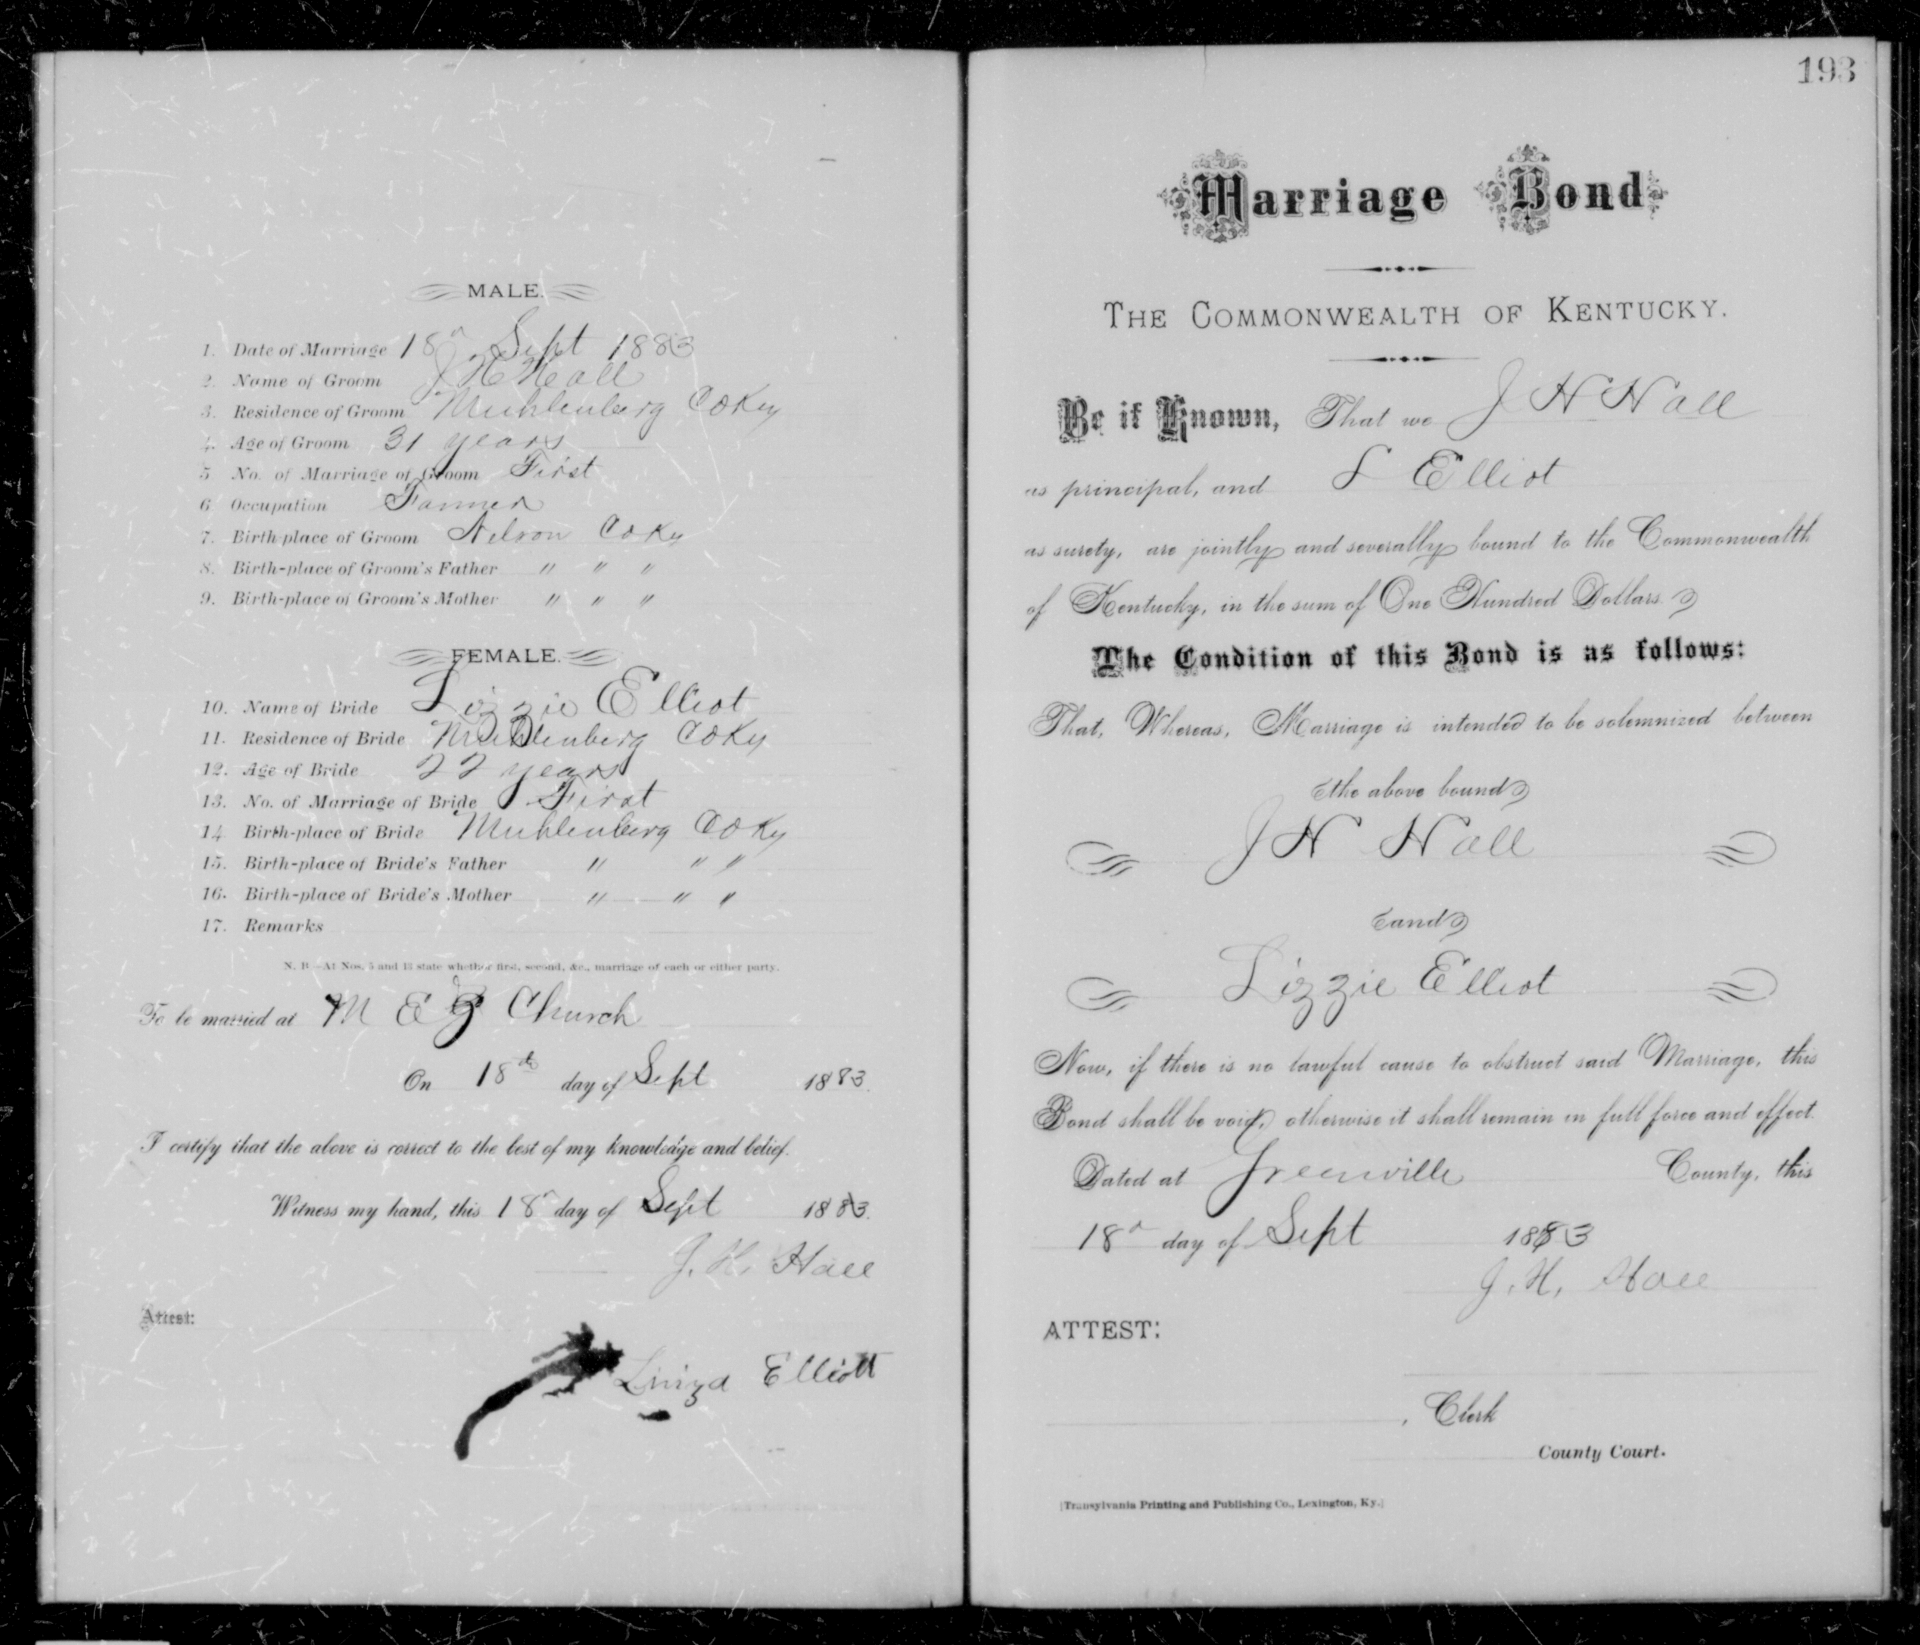 MALE.
1. Date of Marriage 18th Sept 1883
2. Name of Groom J H Hall
3. Residence of Groom Muhlenberg Co Ky
4. Age of Groom 31 years
5 No. of Marriage of Groom First
6 Occupation Farmer
7. Birth-place of Groom Nelson Co Ky
8. Birth-place of Groom's Father " " "
9. Birth-place of Groom's Mother " " "
FEMALE.
10. Name of Bride Lizzie Elliot
11. Residence of Bride Muhlenberg Co Ky
12. Age of Bride 22 years
13. No. of Marriage of Bride First
14 Birth-place of Bride Muhlenberg Co Ky
15. Birth-place of Bride's Father " " "
16. Birth-place of Bride's Mother " " "
17. Remarks
N. B—At Nos. 5 and 13 state whether first, second, &c., marriage of each or either party.
To be married at M E Church
On 18th day of Sept 1883.
I certify that the above is correct to the best of my knowledge and belief.
Witness my hand, this 18 day of Sept 1883.
J. H. Hall
Attest:
Elliott
193
Marriage Bond
THE COMMONWEALTH OF KENTUCKY.
Be it Known, That we J H Hall
as principal, and S Elliot
as surety, are jointly and severally bound to the Commonwealth
of Kentucky, in the sum of One Hundred Dollars.
The Condition of this Bond is as follows:
That, Whereas, Marriage is intended to be solemnized between
the above bound
J H Hall
and
Lizzie Elliot
Now, if there is no lawful cause to obstruct said Marriage, this
Bond shall be void, otherwise it shall remain in full force and effect.
Dated at Greenville County, this
18th day of Sept 1883
J. H. Hall
ATTEST:
, Clerk
County Court.
[Transylvania Printing and Publishing Co., Lexington, Ky.]